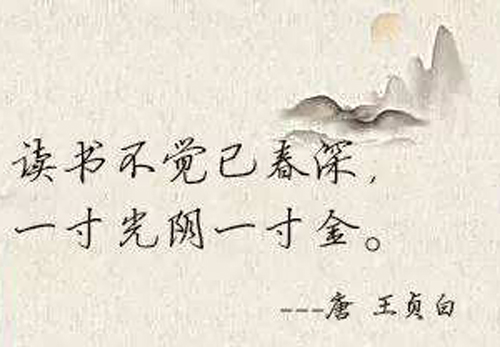 读书不觉已春深，
一寸光阴一寸金。
---唐 王贞白